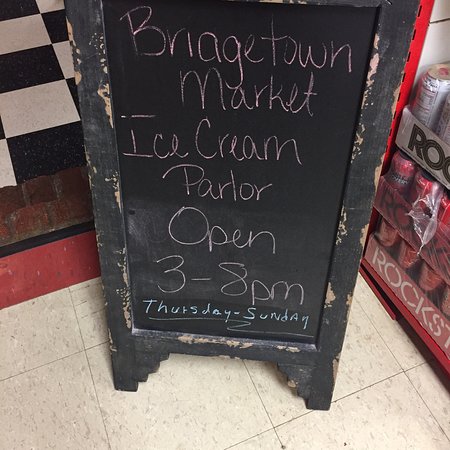 Bridgetown
Market
Ice Cream
Parlor
Open
3-8pm
Thursday-Sunday
ROCK
ROCKST